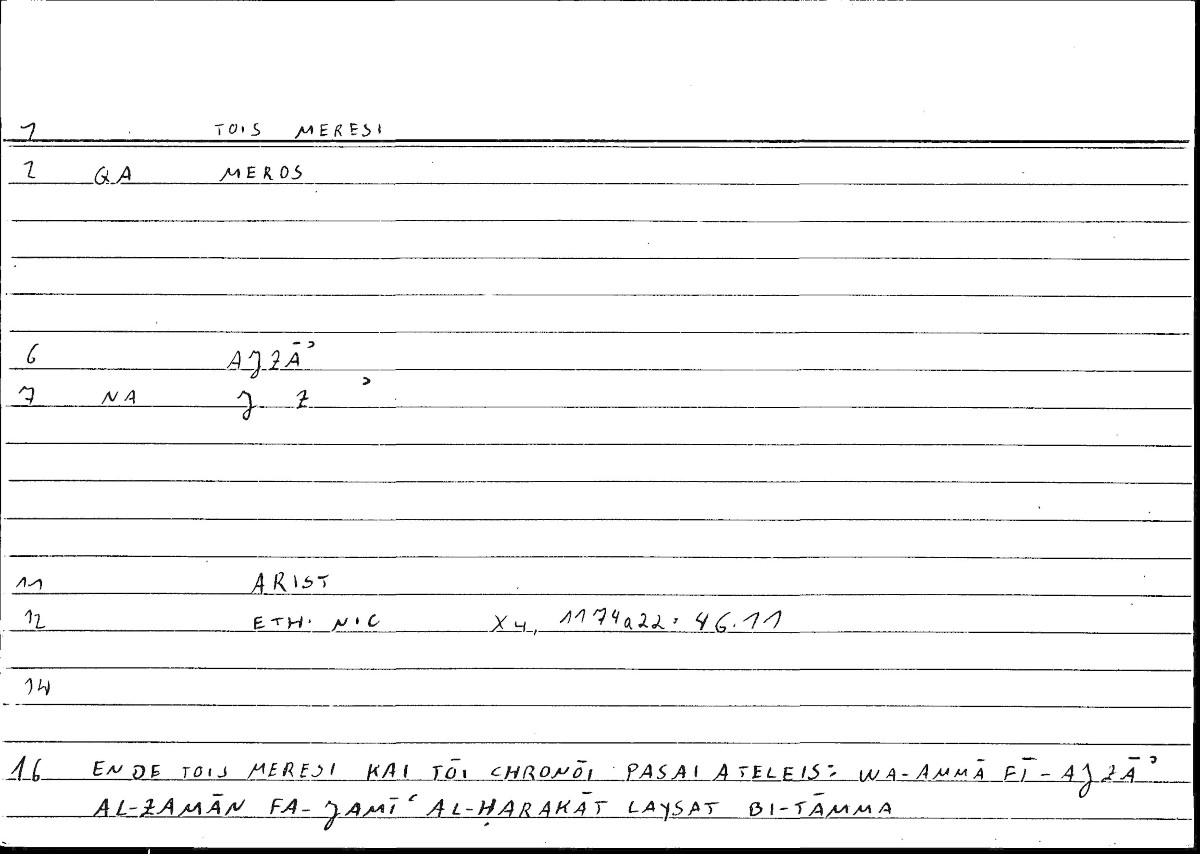 1 TOIS MERESI
2 QA MEROS
6 AJZĀʾ
7 NA J Z ʾ
11 ARIST
12 ETH. NIC X4, 1174a22: 46.11
14
16 EN DE TOIS MERESI KAI TŌI CHRONŌI PASAI ATELEIS: WA-AMMĀ FĪ-AJZĀʾ
AL-ZAMĀN FA-JAMĪʿ AL-ḤARAKĀT LAYSAT BI-TĀMMA